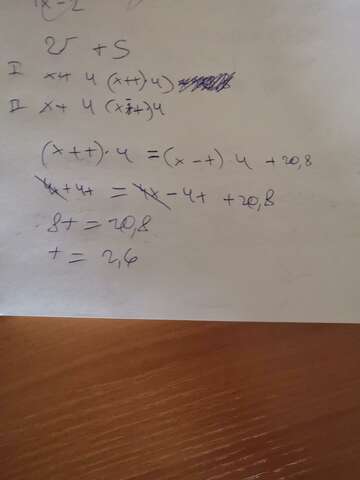 x-2
v t S
I x+t 4 (x+t)4
II x-t 4 (x-t)4
(x+t)·4 = (x-t)4 +20,8
4x+4t = 4x-4t +20,8
8t = 20,8
t = 2,6